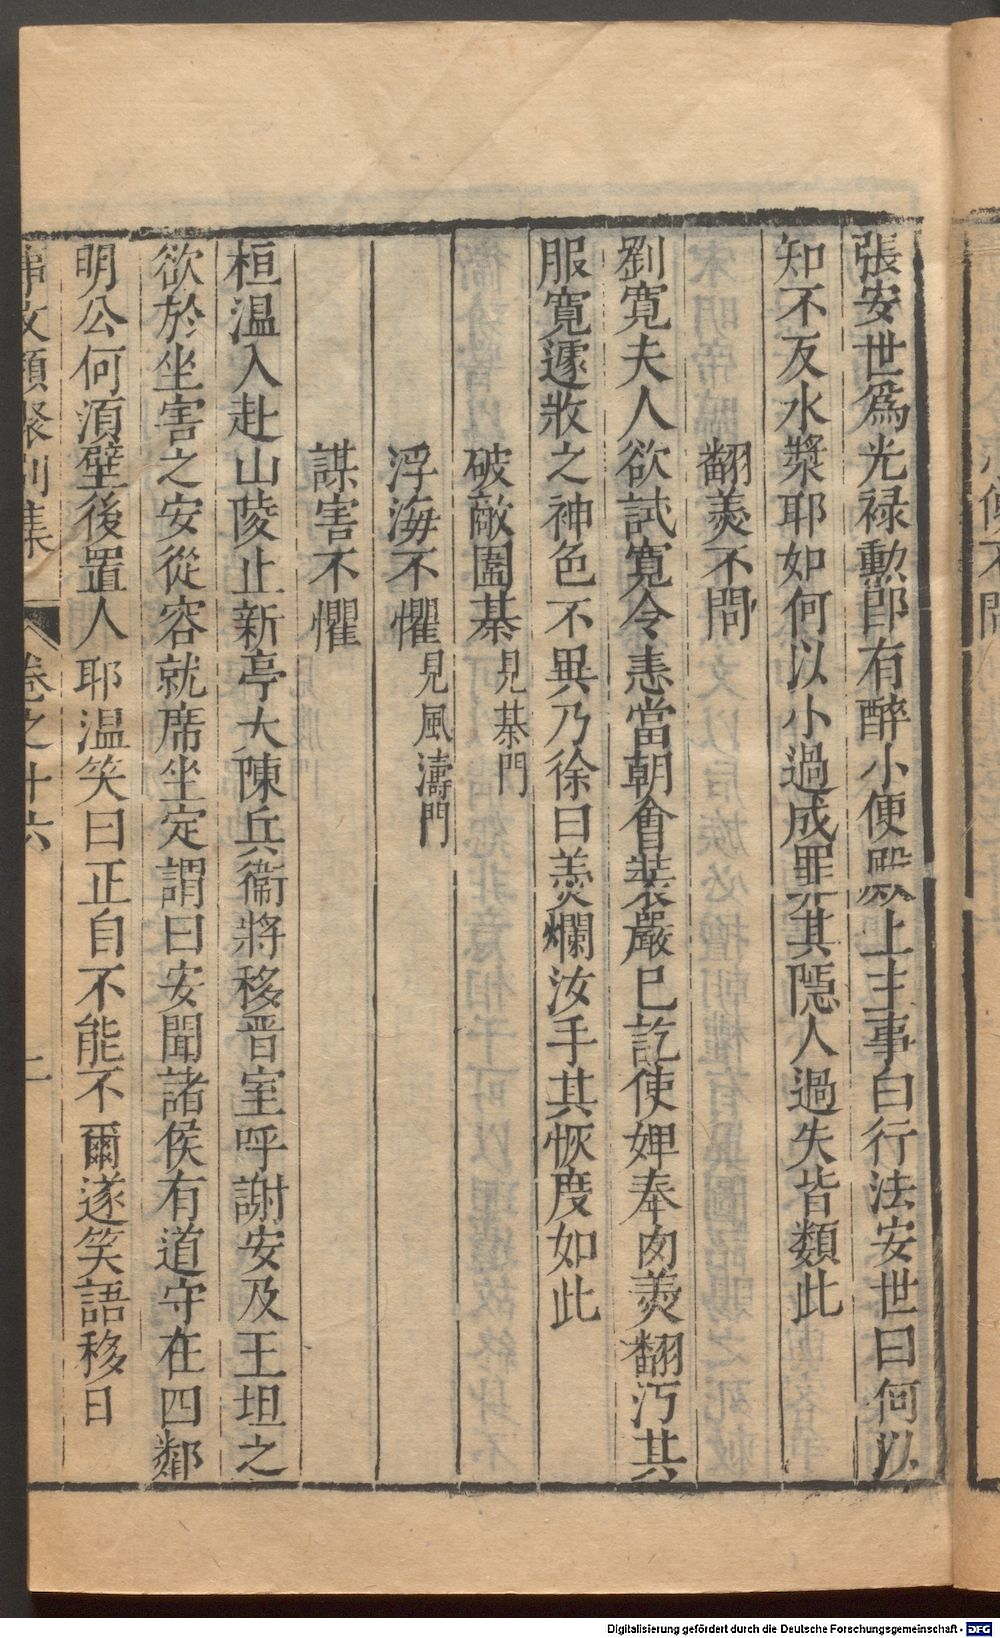 張安世爲光祿勲郎有醉小便殿上主事白行法安世曰何以
知不反水漿耶如何以小過成罪其隱人過失皆類此
翻羹不問
劉寛夫人欲試寛令恚當朝會装嚴已訖使婢奉肉羹翻汚其
服寛遽收之神色不異乃徐曰羹爛汝手其恢度如此
破敵圍棊見棊門
浮海不懼見風濤門
謀害不懼
桓温入赴山陵止新亭大陳兵衞將移晋室呼謝安及王坦之
欲於坐害之安從容就席坐定謂曰安聞諸侯有道守在四鄰
明公何湏壁後置人耶温笑曰正自不能不爾遂笑語移日
事文類聚別集 卷之十六
Digitalisierung gefördert durch die Deutsche Forschungsgemeinschaft - DFG